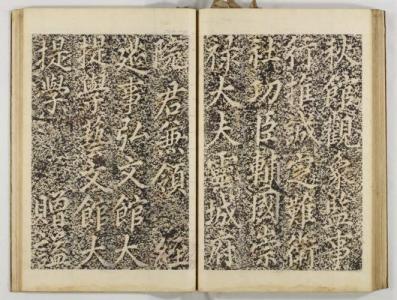 秋館觀象監事
行推誠定難衛
社功臣輔國崇
祿大夫靈城府
院君兼領經
筵事弘文館大
提學藝文館大
提學 贈謚